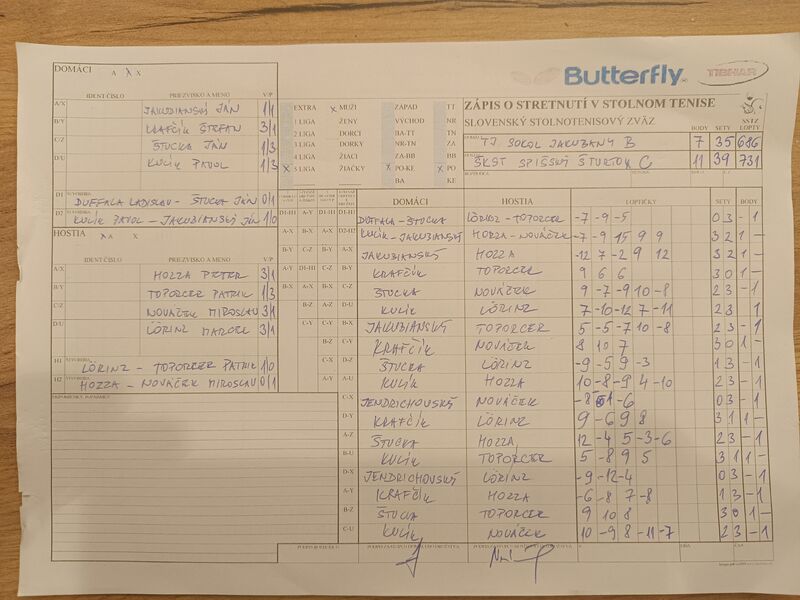 DOMÁCI A X X
IDENT·ČÍSLO PRIEZVISKO A MENO V/P
A/X JAKUBIANSKÝ JÁN 1/1
B/Y KRAFČÍK ŠTEFAN 3/1
C/Z ŠTUCKA JÁN 1/3
D/U KULÍK PAVOL 1/3
D1 DUFFALA LADISLAV - ŠTUCKA JÁN 0/1
D2 KULÍK PAVOL - JAKUBIANSKÝ JÁN 1/0
HOSTIA X A X
IDENT·ČÍSLO PRIEZVISKO A MENO V/P
A/X HOZZA PETER 3/1
B/Y TOPORCER PATRIK 1/3
C/Z NOVÁČEK MIROSLAV 3/1
D/U LÖRINZ MAREK 3/1
H1 LÖRINZ - TOPORCER PATRIK 1/0
H2 HOZZA - NOVÁČEK MIROSLAV 0/1
EXTRA X MUŽI ZÁPAD TT
1 LIGA ŽENY VÝCHOD NR
2 LIGA DORCI BA-TT TN
3 LIGA DORKY NR-TN ZA
4 LIGA ŽIACI ZA-BB BB
X 5 LIGA ŽIAČKY X PO-KE X PO
BA KE
Butterfly TIBHAR
ZÁPIS O STRETNUTÍ V STOLNOM TENISE
SLOVENSKÝ STOLNOTENISOVÝ ZVÄZ SSTZ
BODY SETY LOPTY
TJ SOKOL JAKUBANY B 7 35 686
ŠKST SPIŠSKÝ ŠTVRTOK C 11 39 731
DOMÁCI HOSTIA LOPTIČKY SETY BODY
D1-H1 DUFFALA - ŠTUCKA LÖRINZ - TOPORCER -7 -9 -5 0 3 - 1
D2H2 KULÍK - JAKUBIANSKÝ HOZZA - NOVÁČEK -7 -9 15 9 9 3 2 1 -
A-X JAKUBIANSKÝ HOZZA -12 7 -2 9 12 3 2 1 -
B-Y KRAFČÍK TOPORCER 9 6 6 3 0 1 -
C-Z ŠTUCKA NOVÁČEK 9 -7 -9 10 -8 2 3 - 1
D-U KULÍK LÖRINZ 7 -10 -12 7 -11 2 3 - 1
JAKUBIANSKÝ TOPORCER 5 -5 -7 10 -8 2 3 - 1
KRAFČÍK NOVÁČEK 8 10 7 3 0 1 -
ŠTUCKA LÖRINZ -9 -5 9 -3 1 3 - 1
A-U KULÍK HOZZA 10 -8 -9 4 -10 2 3 - 1
C-X JENDRICHOVSKÝ NOVÁČEK 0 3 - 1
D-Y KRAFČÍK LÖRINZ 9 -6 9 8 3 1 1 -
A-Z ŠTUCKA HOZZA 12 -4 5 -3 -6 2 3 - 1
B-U KULÍK TOPORCER 5 -8 9 5 3 1 1 -
D-X JENDRICHOVSKÝ LÖRINZ -9 -12 -4 0 3 - 1
A-Y KRAFČÍK HOZZA -6 -8 7 -8 1 3 - 1
B-Z ŠTUCKA TOPORCER 9 10 8 3 0 1 -
C-U KULÍK NOVÁČEK 10 -9 8 -11 -7 2 3 - 1